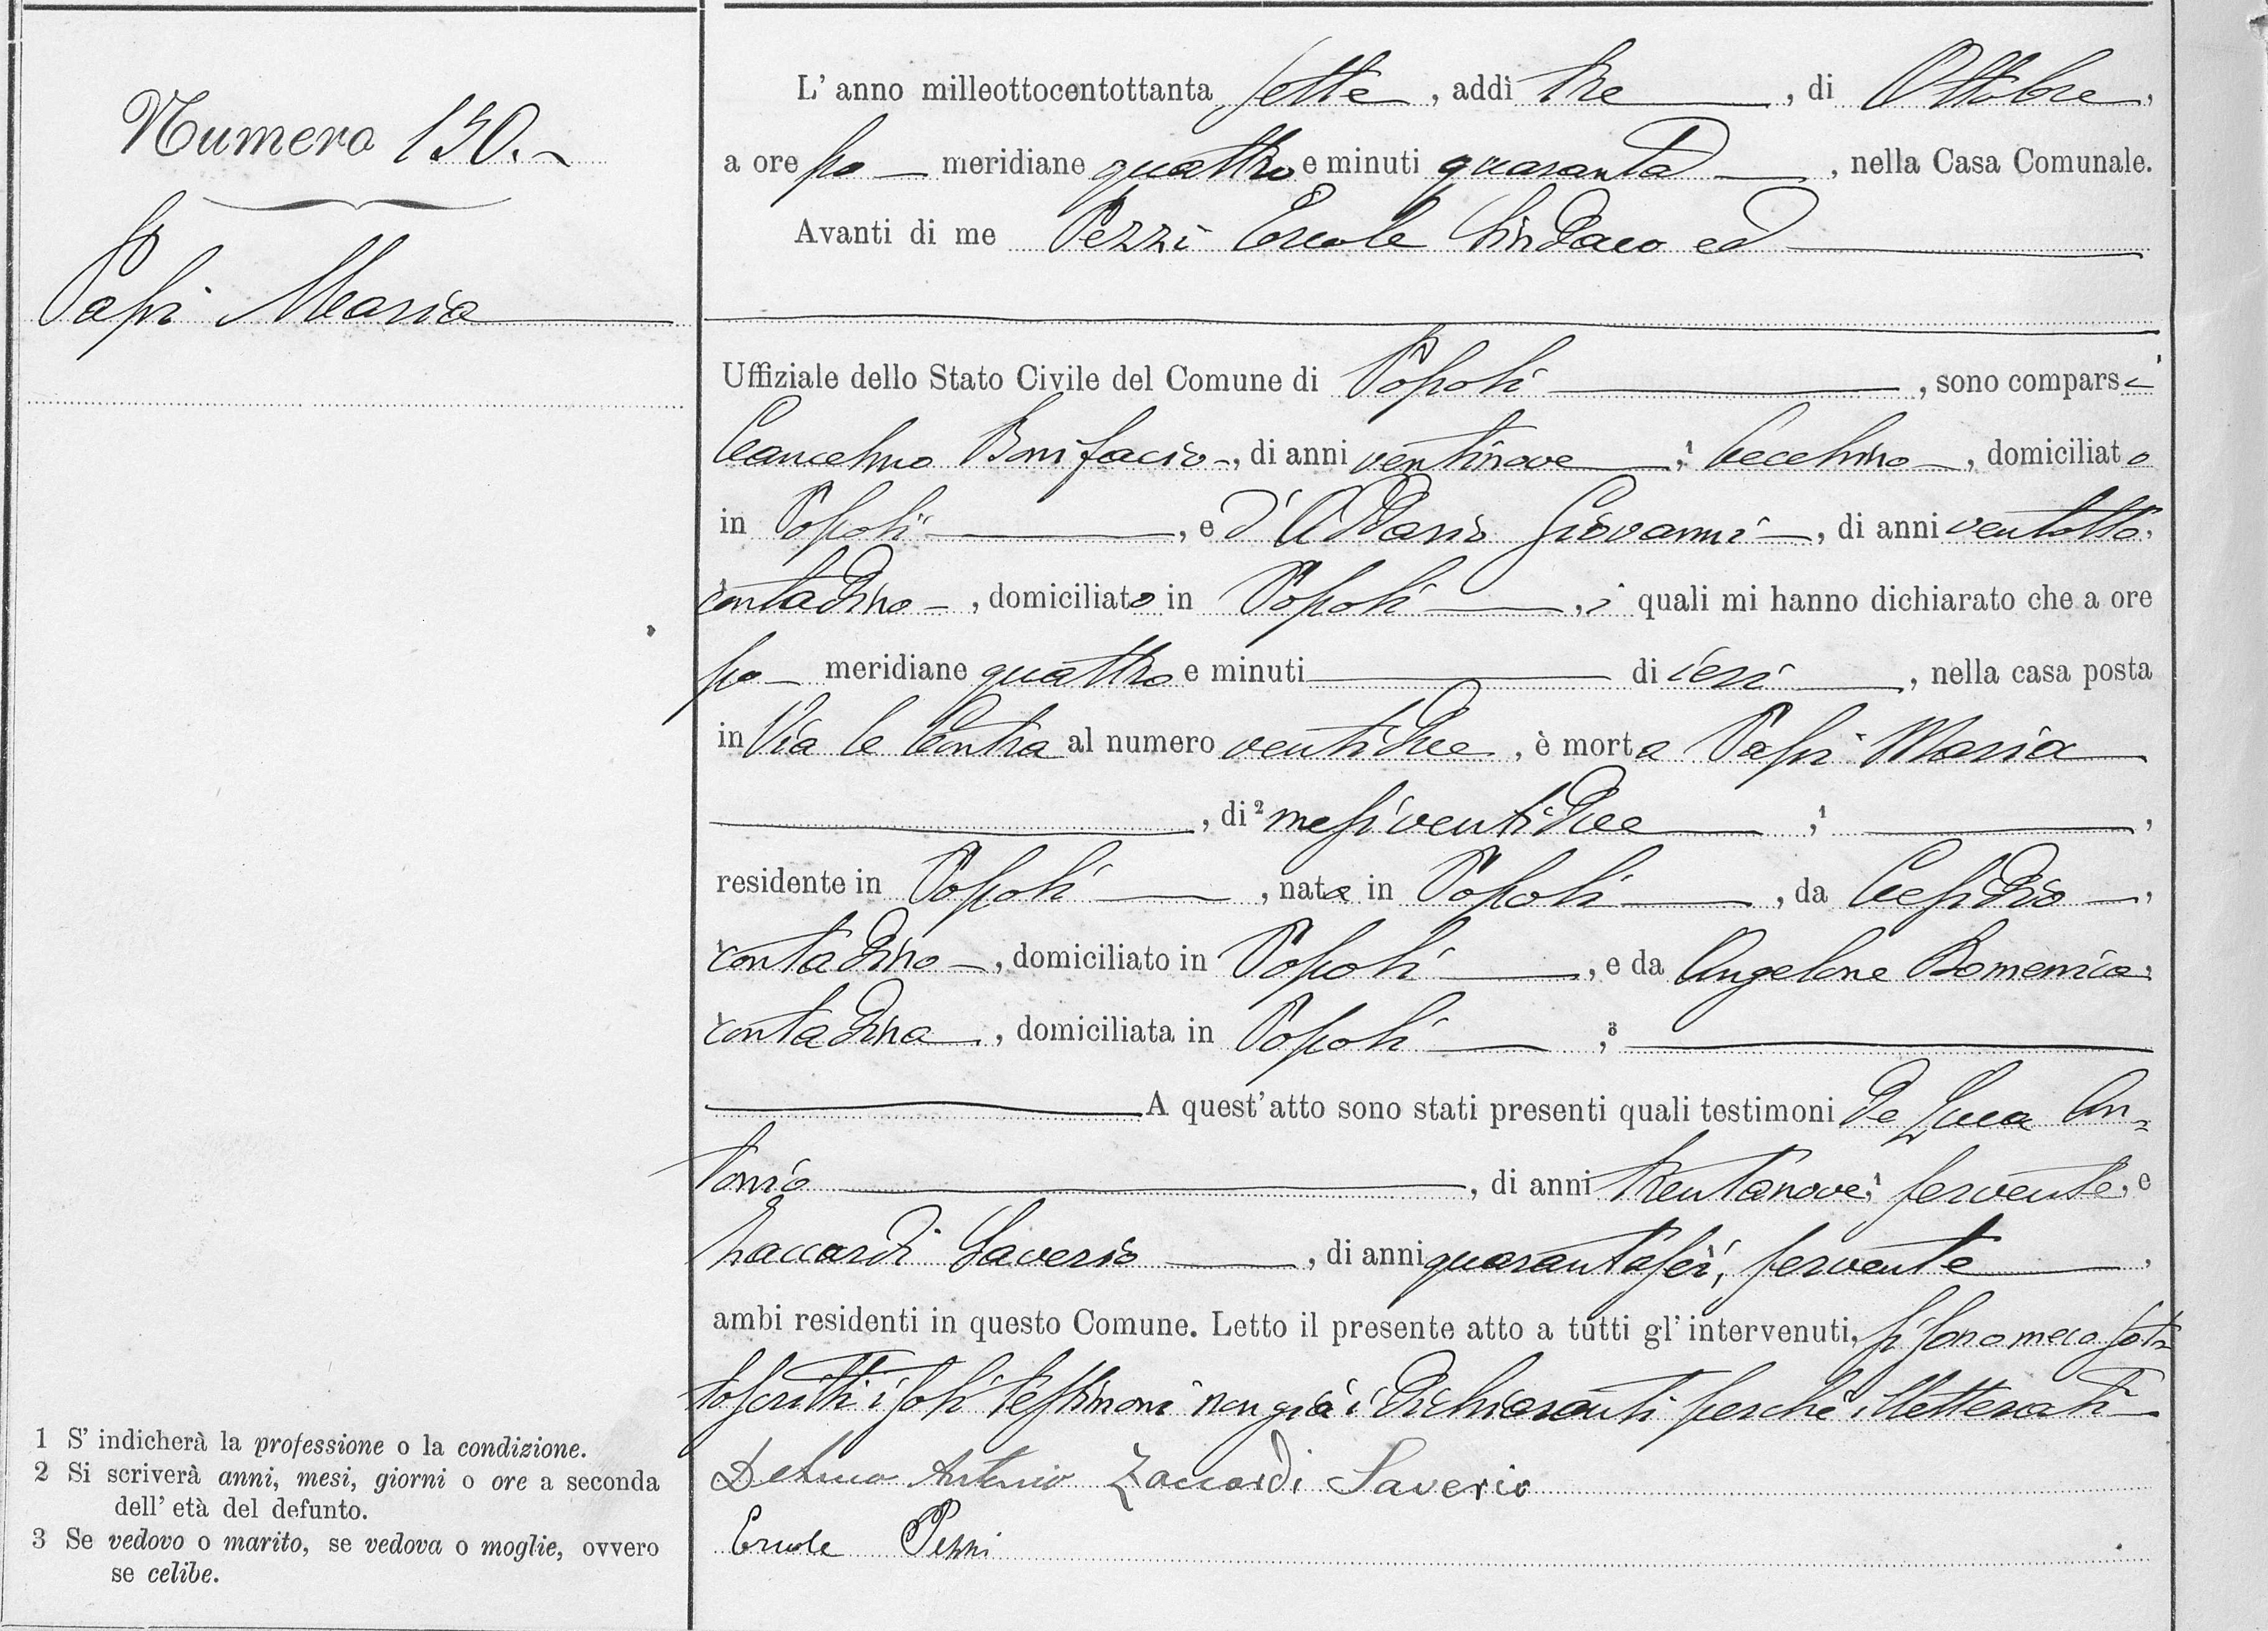 Numero 150.
Papi Maria
L' anno milleottocentottanta sette, addì tre, di Ottobre,
a ore po meridiane quattro e minuti quaranta, nella Casa Comunale.
Avanti di me Pezzi Ercole Sindaco ed
Uffiziale dello Stato Civile del Comune di Popoli, sono comparsi
Bonifacio, di anni ventinove, ¹ becchino, domiciliato
in Popoli, e d'Addario Giovanni, di anni ventotto,
contadino, domiciliato in Popoli, i quali mi hanno dichiarato che a ore
po meridiane quattro e minuti di ieri, nella casa posta
in Via le Contra al numero ventidue, è morta Papi Maria
, di ² mesi ventidue, ¹ ,
residente in Popoli, nata in Popoli, da Cesidio,
contadino, domiciliato in Popoli, e da Angelone Domenica,
contadina, domiciliata in Popoli, ³
A quest'atto sono stati presenti quali testimoni De Luca An=
tonio, di anni trentanove, ¹ servente, e
Zaccardi Saverio, di anni quarantasei, servente,
ambi residenti in questo Comune. Letto il presente atto a tutti gl' intervenuti, si sono meco sot=
toscritti i soli testimoni non già i dichiaranti perchè illetterati
Deluca Antonio Zaccardi Saverio
Ercole Pezzi
1 S' indicherà la professione o la condizione.
2 Si scriverà anni, mesi, giorni o ore a seconda
dell' età del defunto.
3 Se vedovo o marito, se vedova o moglie, ovvero
se celibe.